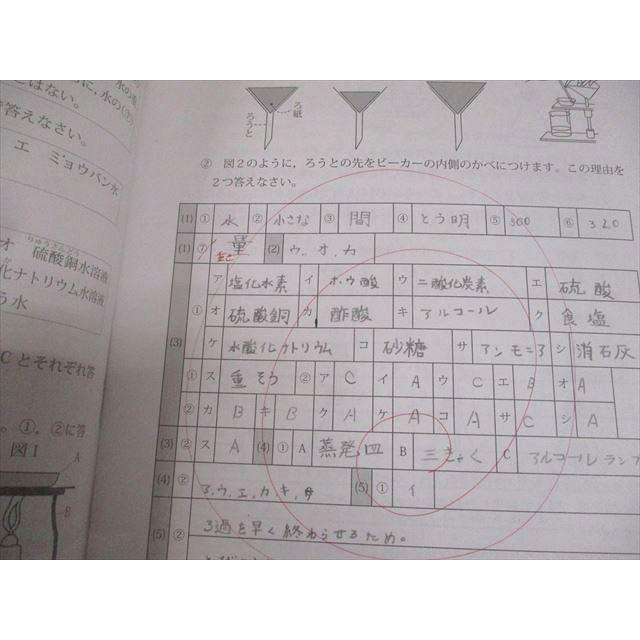 とはない。
答えなさい。
エ ミョウバン水
オ 硫酸銅水溶液
化ナトリウム水溶液
う水
Cとそれぞれ答
①，②に答
図1
A
B
ろうと
ろ紙
② 図2のように，ろうとの先をビーカーの内側のかべにつけます。この理由を
2つ答えなさい。
(1) ① 水 ② 小さな ③ 間 ④ とう明 ⑤ 300 ⑥ 320
(1) ⑦ 量 (2) ウ.オ.カ
(3) ① ア 塩化水素 イ ホウ酸 ウ 二酸化炭素 エ 硫酸
オ 硫酸銅 カ 酢酸 キ アルコール ク 食塩
ケ 水酸化ナトリウム コ 砂糖 サ アンモニア シ 消石灰
① ス 重そう ② ア C イ A ウ C エ B オ A
② カ B キ B ク A ケ A コ A サ C シ A
(3) ② ス A (4) ① A 蒸発皿 B 三きゃく C アルコールランプ
(4) ② ア.ウ.エ.カ.キ. (5) ① イ
(5) ② ろ過を早く終わらせるため。